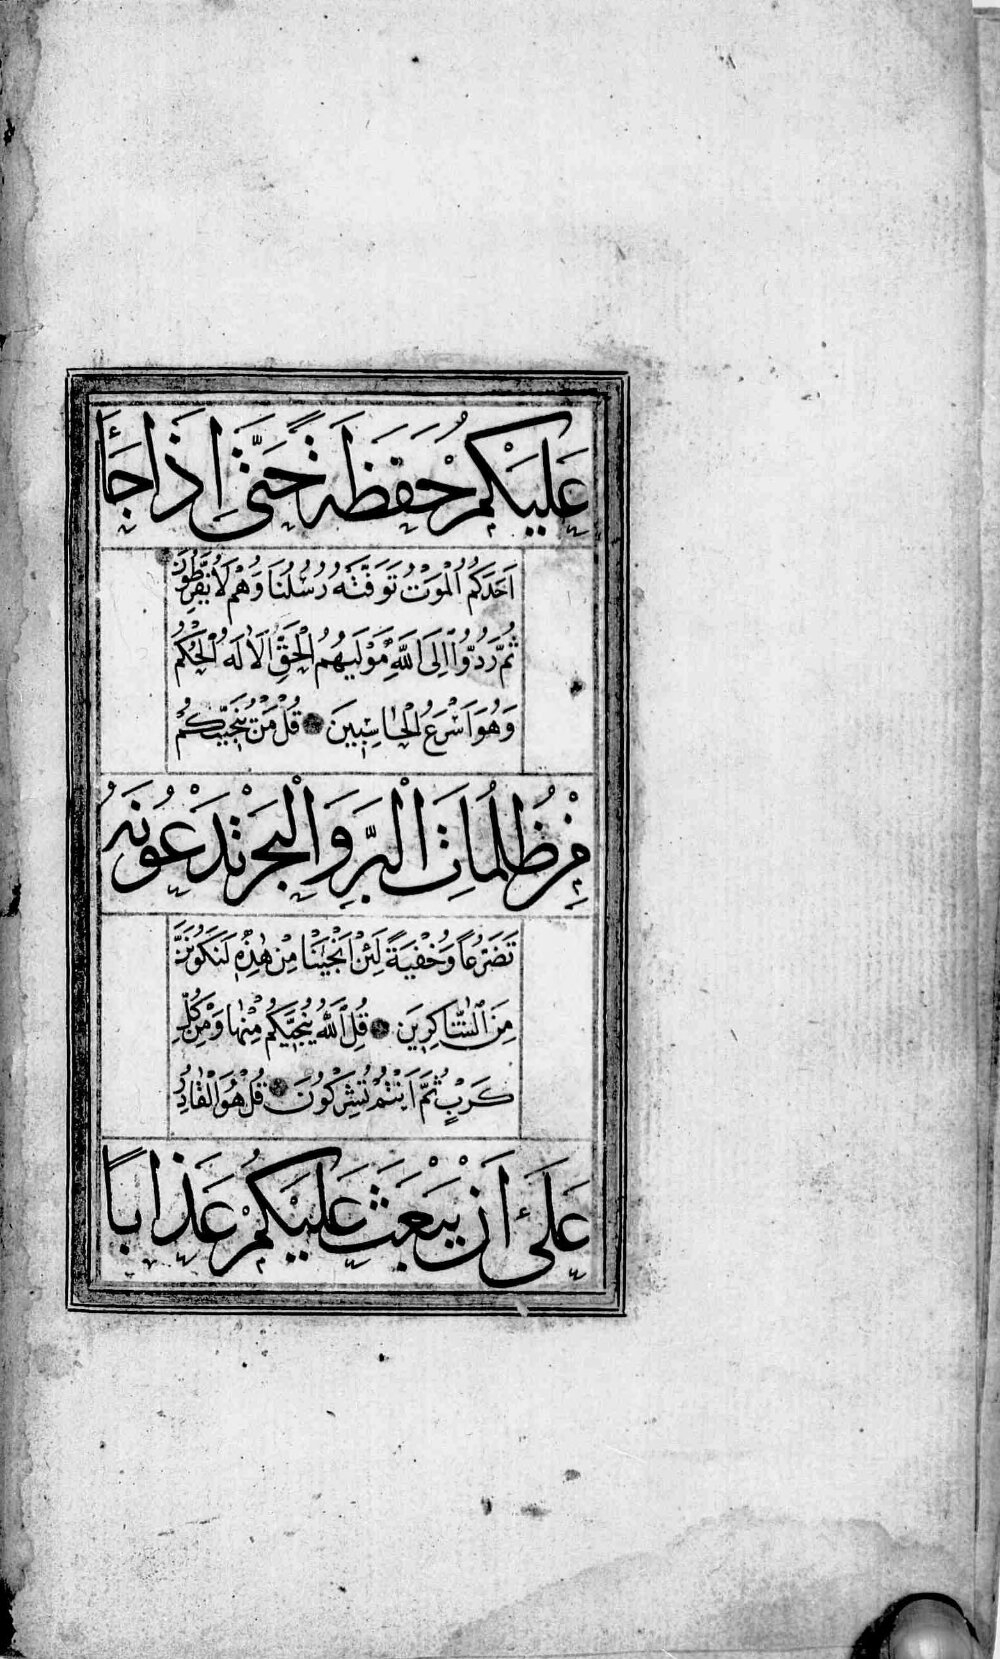 عَلَيْكُمْ حَفَظَةً حَتَّىٰ اِذَا جَآءَ
اَحَدَكُمُ الْمَوْتُ تَوَفَّتْهُ رُسُلُنَا وَهُمْ لَا يُفَرِّطُونَ
ثُمَّ رُدُّوا اِلَى اللَّهِ مَوْلَيهُمُ الْحَقِّ اَلَا لَهُ الْحُكْمُ
وَهُوَ اَسْرَعُ الْحَاسِبِينَ قُلْ مَنْ يُنَجِّيكُمْ
مِنْ ظُلُمَاتِ الْبَرِّ وَالْبَحْرِ تَدْعُونَهُ
تَضَرُّعًا وَخُفْيَةً لَئِنْ اَنْجَيْنَا مِنْ هٰذِهِ لَنَكُونَنَّ
مِنَ الشَّاكِرِينَ قُلِ اللَّهُ يُنَجِّيكُمْ مِنْهَا وَمِنْ كُلِّ
كَرْبٍ ثُمَّ اَنْتُمْ تُشْرِكُونَ قُلْ هُوَ الْقَادِرُ
عَلَىٰٓ اَنْ يَبْعَثَ عَلَيْكُمْ عَذَابًا